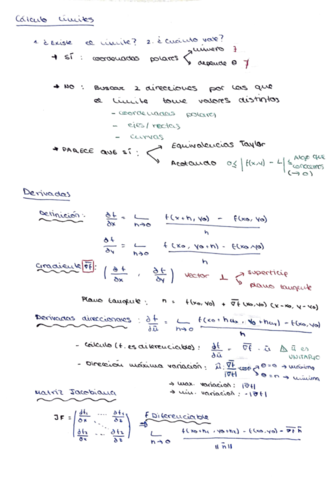 Cálculo Límites
1. ¿Existe el límite? 2. ¿Cuánto vale?
* SÍ: coordenadas polares → número
→ depende θ
* NO: Buscar 2 direcciones por las que
el límite tome valores distintos
- coordenadas polares
- ejes/rectas
- curvas
* PARECE QUE SÍ: Equivalencias Taylor
Acotando 0≤ |f(x,y) - L| ≤ Algo que (→0)
Derivadas
Definición: ∂f/∂x = Lim h→0 f(x+h, y0) - f(x0, y0) / h
∂f/∂y = Lim h→0 f(x0, y0+h) - f(x0, y0) / h
Gradiente ∇f: (∂f/∂x, ∂f/∂y) vector ⊥ superficie
plano tangente
Plano tangente: = f(x0, y0) + ∇f(x0, y0) (x-x0, y-y0)
Derivadas direccionales: ∂f/∂ū = Lim h→0 - f(x0, y0) / h
- Cálculo (f. es diferenciable): ∂f/∂ū = ∇f · ū ū es UNITARIO
- Dirección máxima variación: ū = ∇f/|∇f| θ=0 → máxima
θ=π → mínima
* max variación: |∇f|
* min. variación: -|∇f|
Matriz Jacobiana
f Diferenciable
JF =
Lim h→0